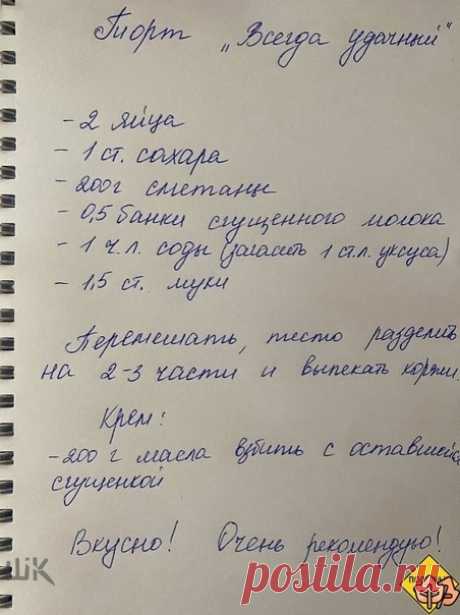 Торт „Всегда удачный“
- 2 яйца
- 1 ст. сахара
- 200г сметаны
- 0,5 банки сгущенного молока
- 1 ч.л. соды (загасить 1 ст.л. уксуса)
- 1,5 ст. муки
Перемешать, тесто разделить
на 2-3 части и выпекать коржи.
Крем:
- 200 г масла взбить с оставшейся
сгущенкой
Вкусно! Очень рекомендую!
postila.ru